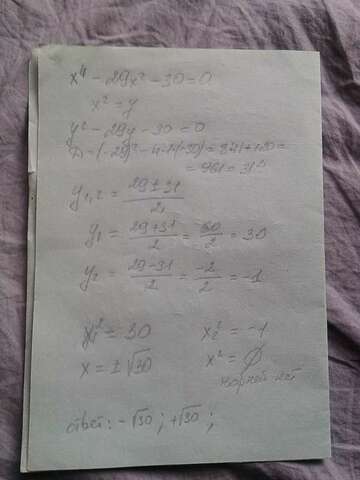 x⁴ - 29x² - 30 = 0
x² = y
y² - 29y - 30 = 0
D = (-29)² - 4·1·(-30) = 841 + 120 =
= 961 = 31²
y₁,₂ = (29 ± 31)/2
y₁ = (29+31)/2 = 60/2 = 30
y₂ = (29-31)/2 = -2/2 = -1
x₁² = 30 x₂² = -1
x = ±√30 x² = ∅
корней нет
ответ: -√30 ; +√30 ;